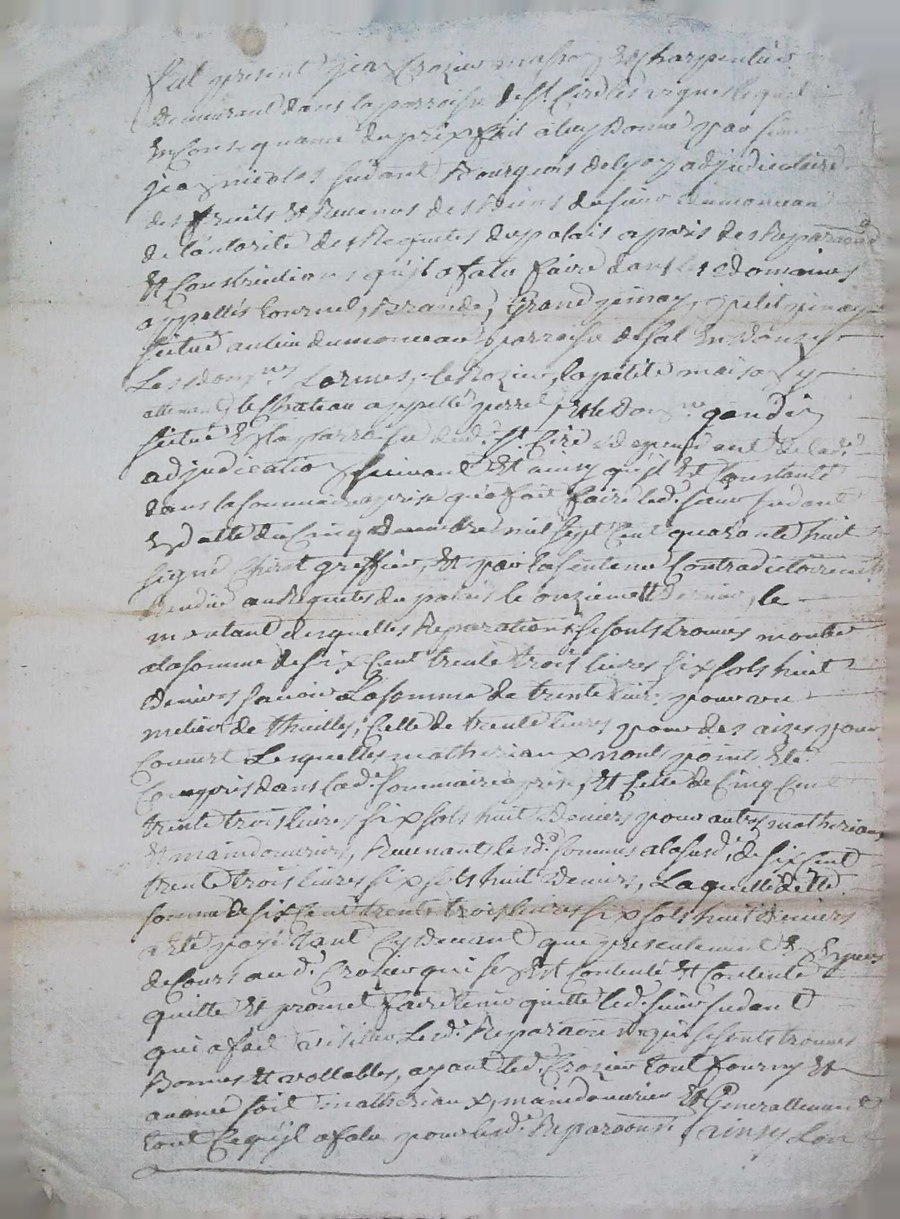 fut present jean Crozier masson et charpentier
demeurant dans la parroisse de St. Cire les vignes lequel
en consequance du prixfait a luy donné par sieur
jean nicolas sudant Bourgeois de lyon adjudicataire
des fruits et Revenus des Biens du sieur dumonceau
de l'autorité des Requetes du palais a paris des Reparaons
et Constructions qu'il a falu faire dans les domaines
appellés tournel, Brande, Grand pinay, petit pinay
situé au lieu dumonceau parroisse de sal en Donzy
Les dom.nes Lormes, le Rozier, la petite maison y
attenant, le Chateau appellé et le dom.ne gaudin
situé en la parroisse dud. St. Cire dependant de lad.
adjudication suivant et ainsy qu'il est Constaté
dans la sommaire aprise qu'a fait faire led. sieur sudant
en datte du Cinq mil sept Cent quarante huit
signé greffier, et par la sentence Contradictoirement
rendue aux Requetes du palais le onzieme dernier, le
montant desquelles Reparations se sont trouvés monter
a la somme de six Cent trente trois livres six sols huit
deniers savoir La somme de trente livres pour un
milier de thuilles, Celle de trente livres pour des aizes pour
Couvert Lesquelles matheriaux n'ont point eté
Compris dans lad. sommaire aprise, et Celle de Cinq Cent
trente trois livres six sols huit deniers pour autres matheriaux
et maindouvres, Revenants lesd. sommes a la susd. de six Cent
trente trois livres six sols huit deniers, Laquelle ditte
somme de six Cent trente trois livres six sols huit deniers
a eté payé tant Cy devant que presentement en Especes
de Cours aud. Crozier qui s'en est Contenté et Contente
quitte et promet faire tenir quitte led. sieur sudant
qui a fait visiter Lesd. Reparaons qui se sont trouvés
Bonnes et vollables, ayant led. Crozier tout fourny et
avancé soit matheriaux, maindouvres et Generallement
tout Ce qu'il a falu pour lesd. Reparaons ainsy Lon